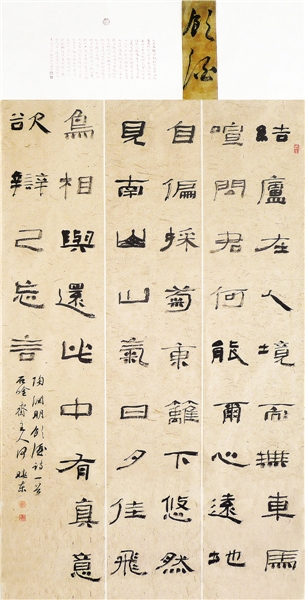 飲酒
結廬在人境而無車馬
喧問君何能爾心遠地
自偏採菊東籬下悠然
見南山山氣日夕佳飛
鳥相與還此中有真意
欲辯已忘言
陶淵明飲酒詩一首
齋主人